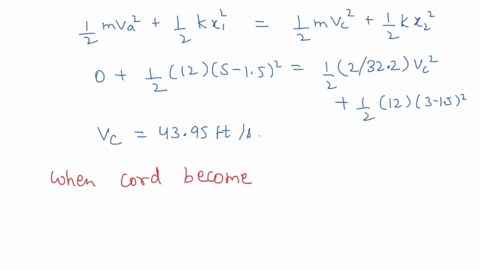 1/2 mVa² + 1/2 kx₁² = 1/2 mVc² + 1/2 kx₂²
0 + 1/2 (12)(5-1.5)² = 1/2 (2/32.2) Vc²
+ 1/2 (12)(3-1.5)²
Vc = 43.95 ft/s.
When cord become